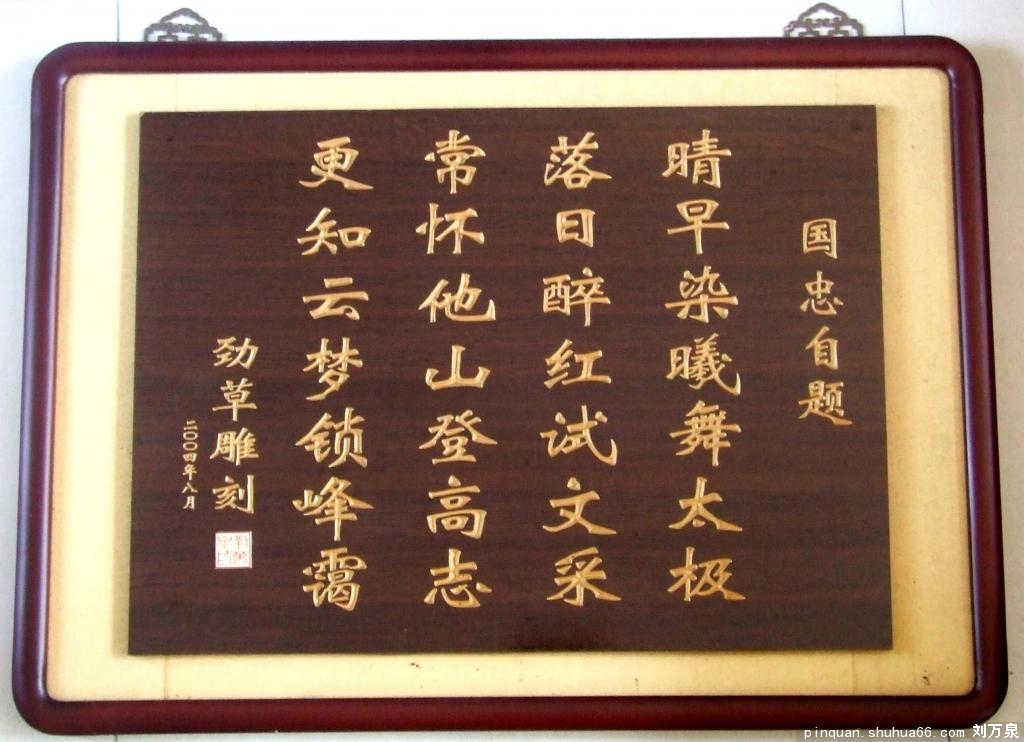 国忠自题
晴早染曦舞太极
落日醉红试文采
常怀他山登高志
更知云梦锁峰霭
劲草雕刻
二〇〇四年八月
pinquan.shuhua66.com 刘万泉